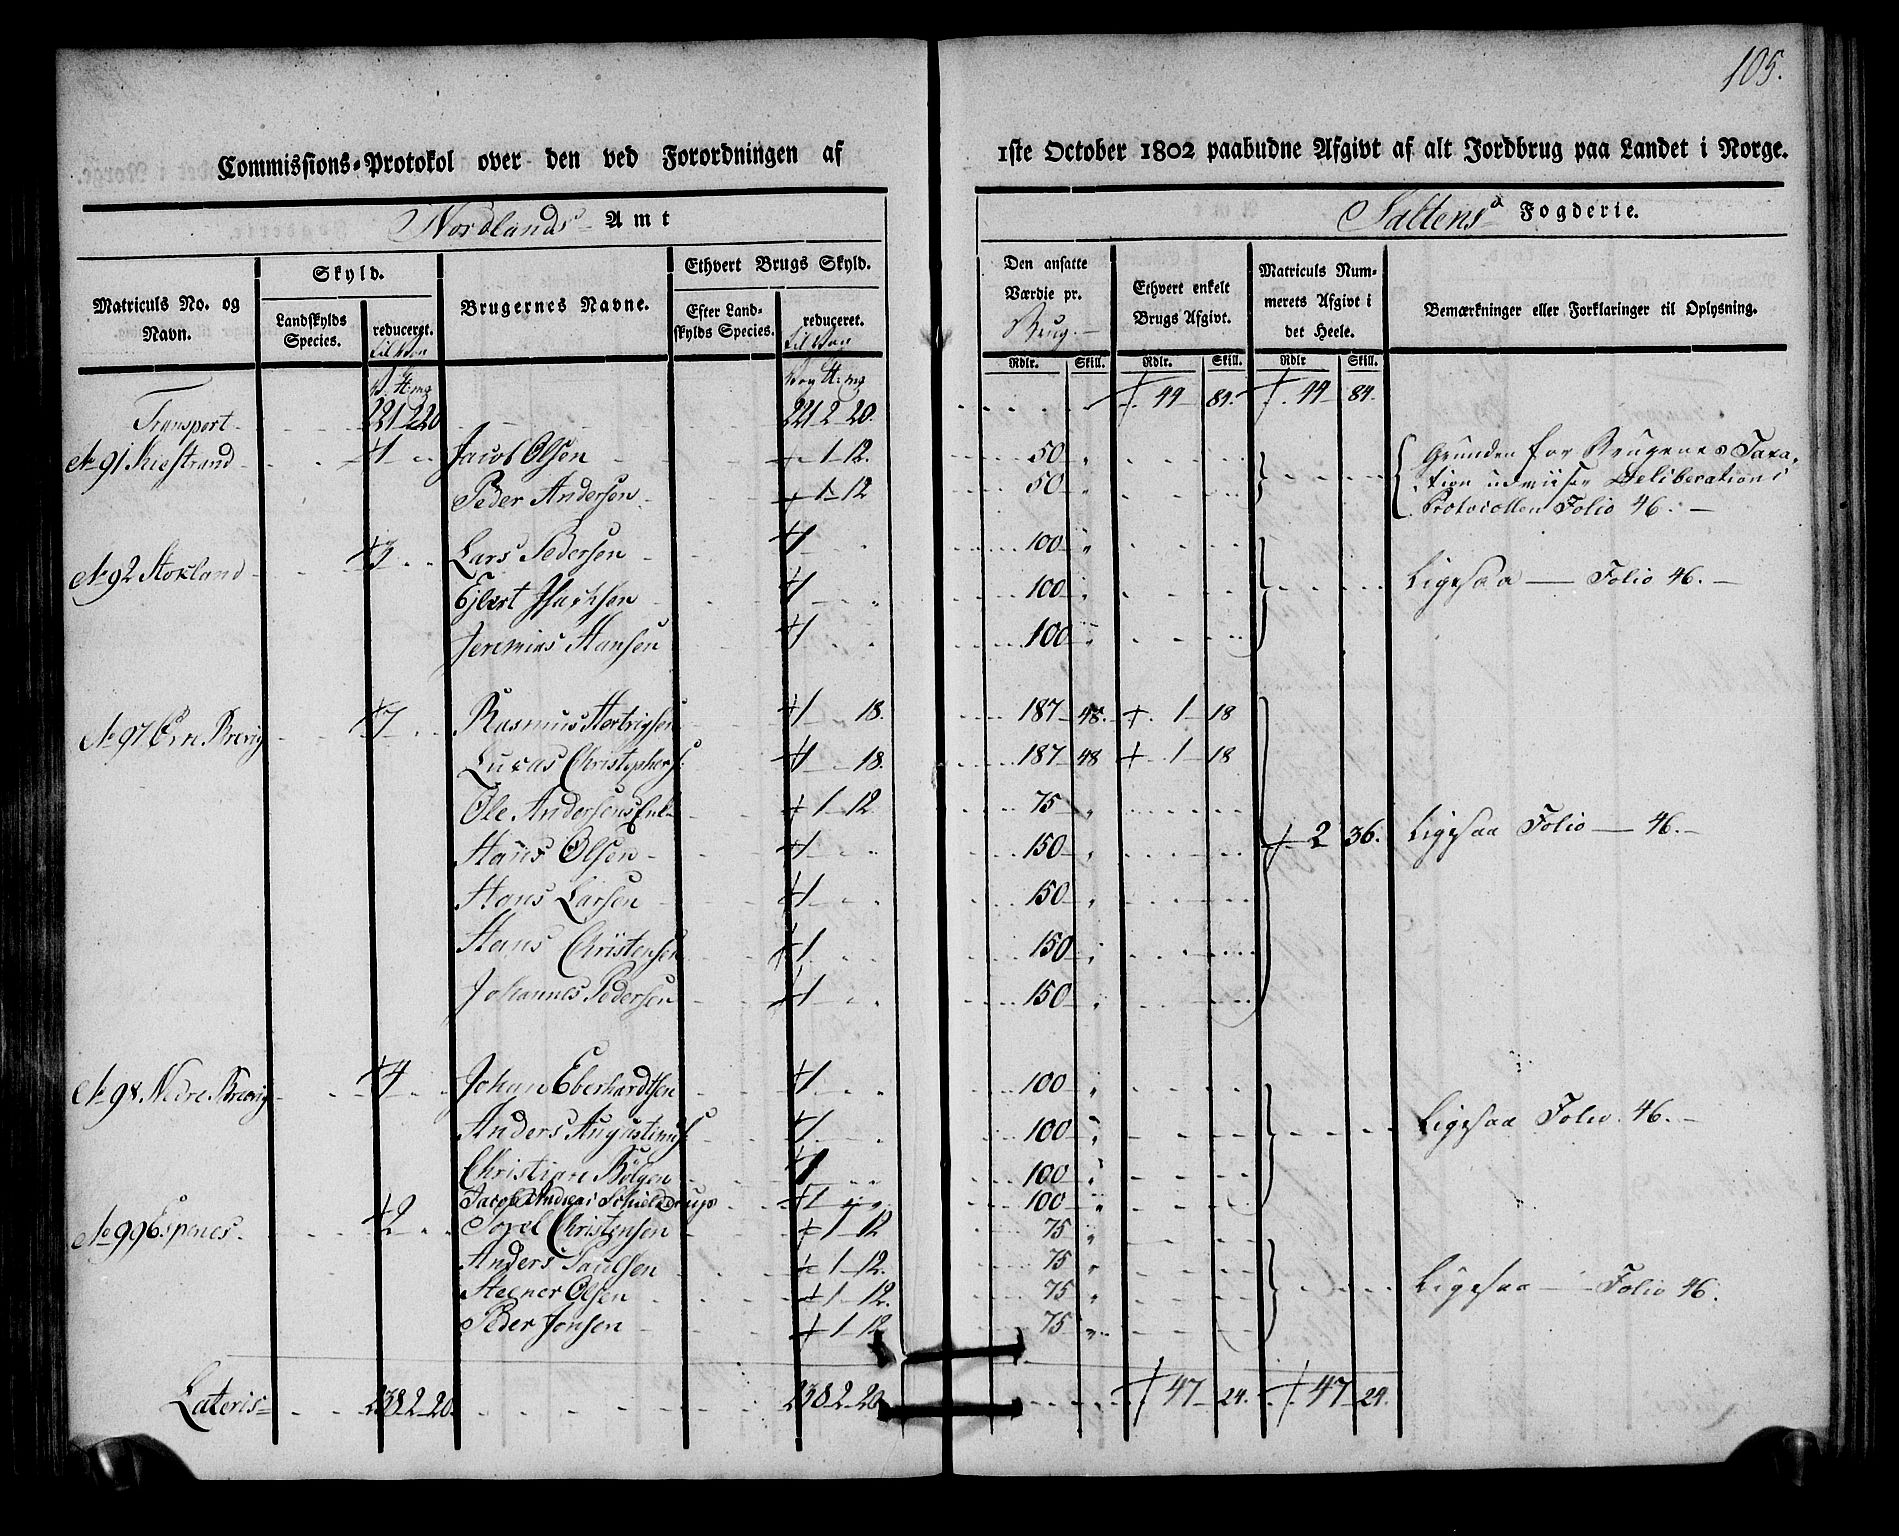 105.
Commissions-Protokol over den ved Forordningen af 1ste October 1802 paabudne Afgivt af alt Jordbrug paa Landet i Norge.
Nordlands Amt
Saltens Fogderie.
Matriculs No. og Navn.
Skyld.
Landskylds Species.
reduceret.
Brugernes Navne.
Ethvert Brugs Skyld.
Efter Landskylds Species.
reduceret.
Den ansatte Værdie pr. Brug.
Ethvert enkelt Brugs Afgivt.
Matriculs Nummerets Afgivt i det Heele.
Bemærkninger eller Forklaringer til Oplysning.
Rdlr. Skill. Rdlr. Skill. Rdlr Skill.
Transport 221 2 20 221 2 20. 44 84. 44 84.
No 91 1 Jacob Olsen 1 12. 50 Grunden for Brugenes Taxa-
Peder Andersen 1 12 50 tion udviiser Deliberations
Protocollen Folio 46.
No 92 Stokland 3 Lars Pedersen 1 100
Ejbert 1 100 Ligesaa Folio 46.
Jeremias Hansen 1 100
No 97 Brevig 7 Rasmus 1 18. 187 48. 1 18
Lucas Christophers: 1 18. 187 48 1 18
Ole Andersens Enke 1 12 75
Hans Olsen 1 150 2 36. Ligesaa Folio 46.
Hans Larsen 1 150
Hans Christensen 1 150
Johannes Pedersen 1 150
No 98 Nedre Brevig 4 Johan Eberhardtsen 1 100
Anders Augustinus: 1 100 Ligesaa Folio. 46.
Christian 1 100
Jacob Andreas Schieldrups 1 100
No 99 Espenes 2 Christensen 1 12 75
Anders Paulsen 1 12. 75
Steener Olsen 1 12. 75 Ligesaa Folio 46.
Peder Jonsen 1 12 75
Lateris 238 2 20. 238 2 20 47 24. 47 24.